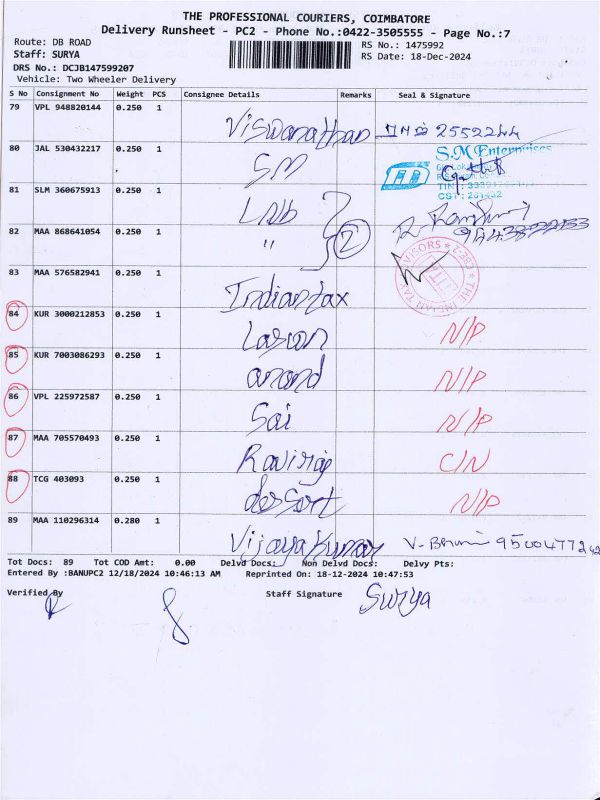 THE PROFESSIONAL COURIERS, COIMBATORE
Delivery Runsheet - PC2 - Phone No.:0422-3505555 - Page No.:7
Route: DB ROAD
RS No.: 1475992
Staff: SURYA
RS Date: 18-Dec-2024
DRS No.: DCJB147599207
Vehicle: Two Wheeler Delivery
S No Consignment No Weight PCS Consignee Details Remarks Seal & Signature
79 VPL 948820144 0.250 1 Viswanathan 2552244
80 JAL 530432217 0.250 1 SM S.M Enterprises
81 SLM 360675913 0.250 1 LNb
82 MAA 868641054 0.250 1 " 2
83 MAA 576582941 0.250 1 Indiantax
84 KUR 3000212853 0.250 1 N/P
85 KUR 7003086293 0.250 1 anand N/P
86 VPL 225972587 0.250 1 Sai N/P
87 MAA 705570493 0.250 1 Raviraj C/N
88 TCG 403093 0.250 1 N/P
89 MAA 110296314 0.280 1 Vijaya Kumar
Tot Docs: 89 Tot COD Amt: 0.00 Delvd Docs: Non Delvd Docs: Delvy Pts:
Entered By :BANUPC2 12/18/2024 10:46:13 AM Reprinted On: 18-12-2024 10:47:53
Verified By Staff Signature Surya